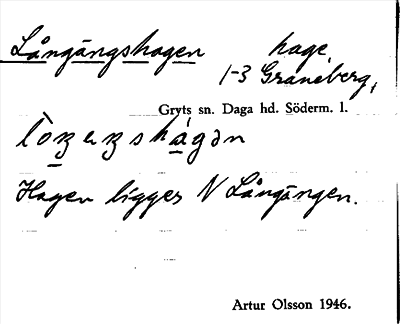 Långängshagen hage
1-3 Graneberg,
Gryts sn. Daga hd. Söderm. l.
Hagen ligger N Långängen.
Artur Olsson 1946.